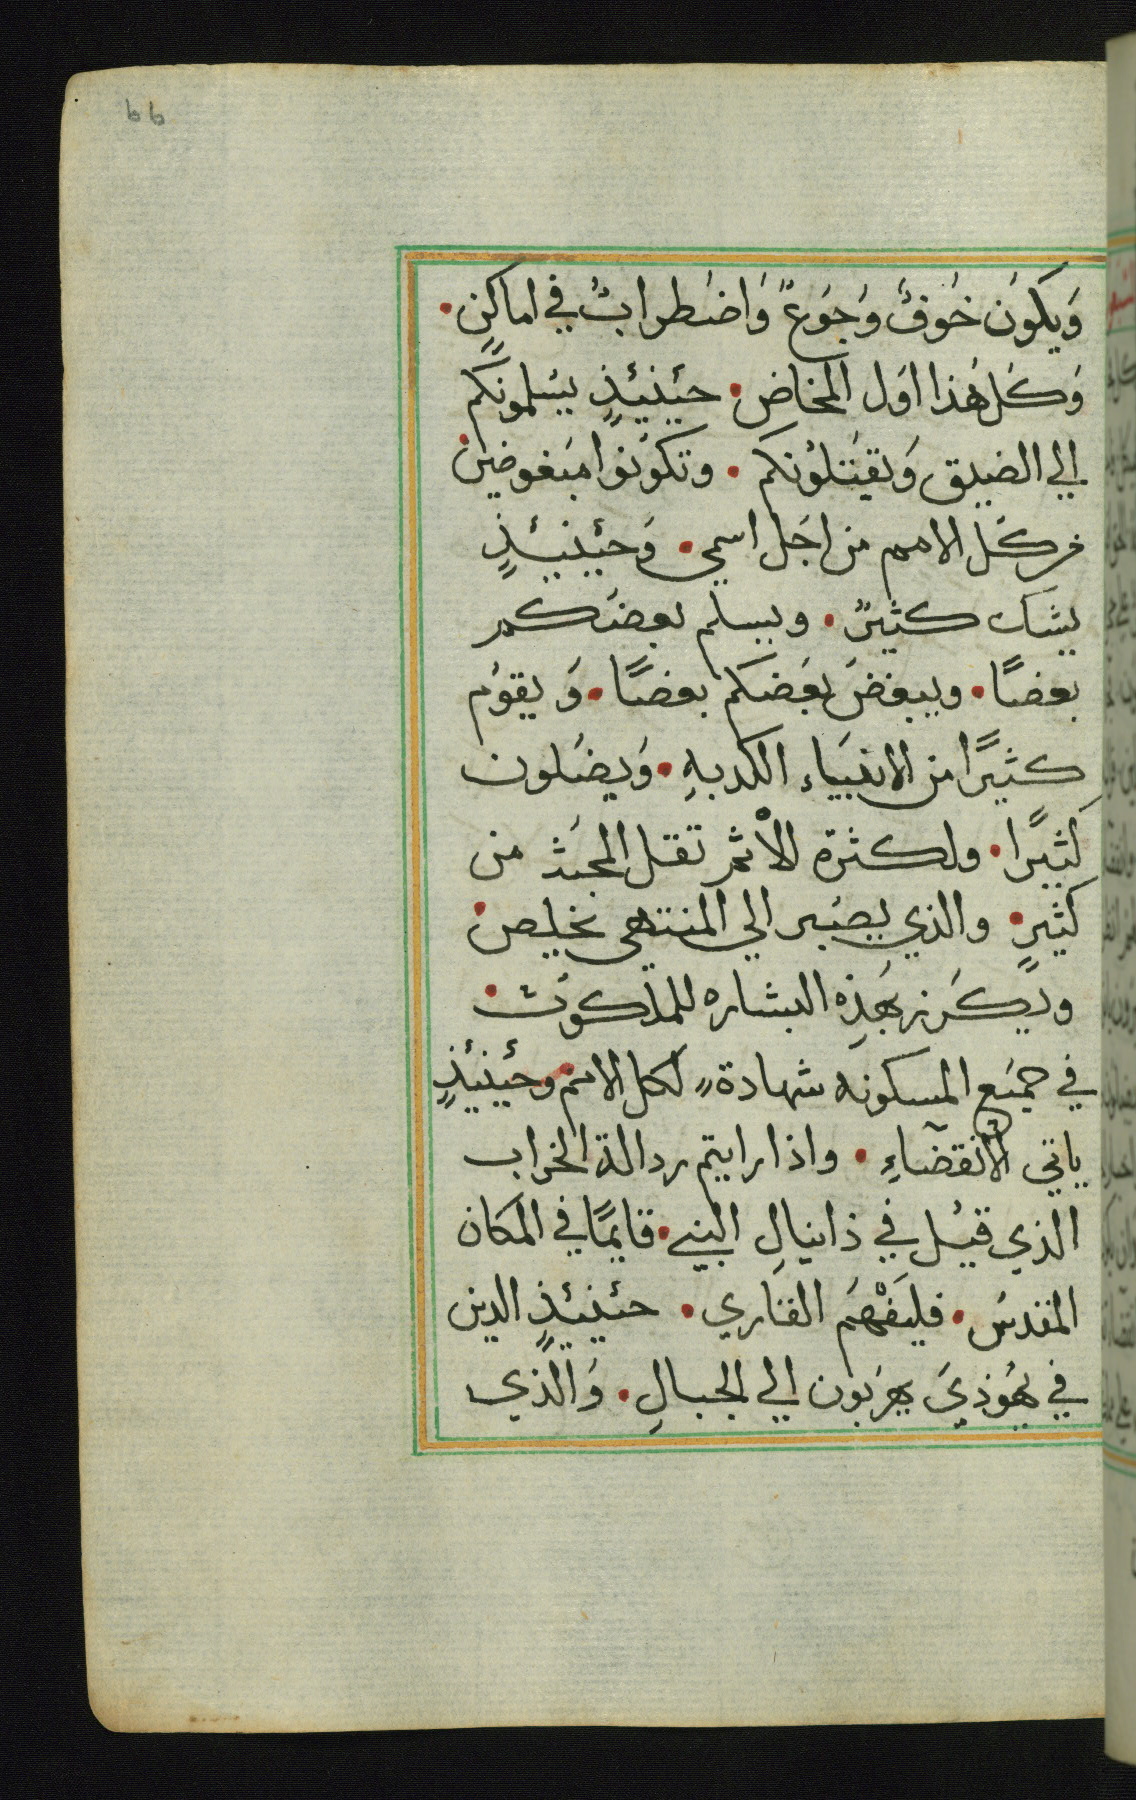 66
وَيكوُن خوُفٌ وَجوَعٌ وَاضطرابٌ في اماكنٍ •
وَكلهذا اوَل المخاض • حيَنيُذٍ يسَلمونكم
الي الضيق وَيقتلوُنكم • وتكوُنوا مبَغوضين
من كل الامم من اجَل اسمي • وَحيَنيُذٍ
يشك كثيرٌ • ويسلم بعضكم
بعضًا • ويبغضَ بعَضكم بعضًا • وَيقوُم
كثيرًا من الانبيَاء الكدبهِ • وَيضَلون
كثيرًا • ولكثرة الأثم تقل المحبَة من
كثيرٍ • والذي يصَبر الي المنتهي يخلص •
ويكرَز بهَذِه البشاره للملكوت •
في جميَع المسكونه شهادةً لكل الامم • وحيَنيُذٍ
ياتي الانقضاءِ • واذا رايتم ردالة الخراب
الذي قيُل في ذانيالِ النبي • قايمًا في المكان
المقدسَ • فليَفْهمَ القاري • حيَنيُذٍ الدين
في يهوُذيَ يهرَبون الي الجبالِ • وَالذَي